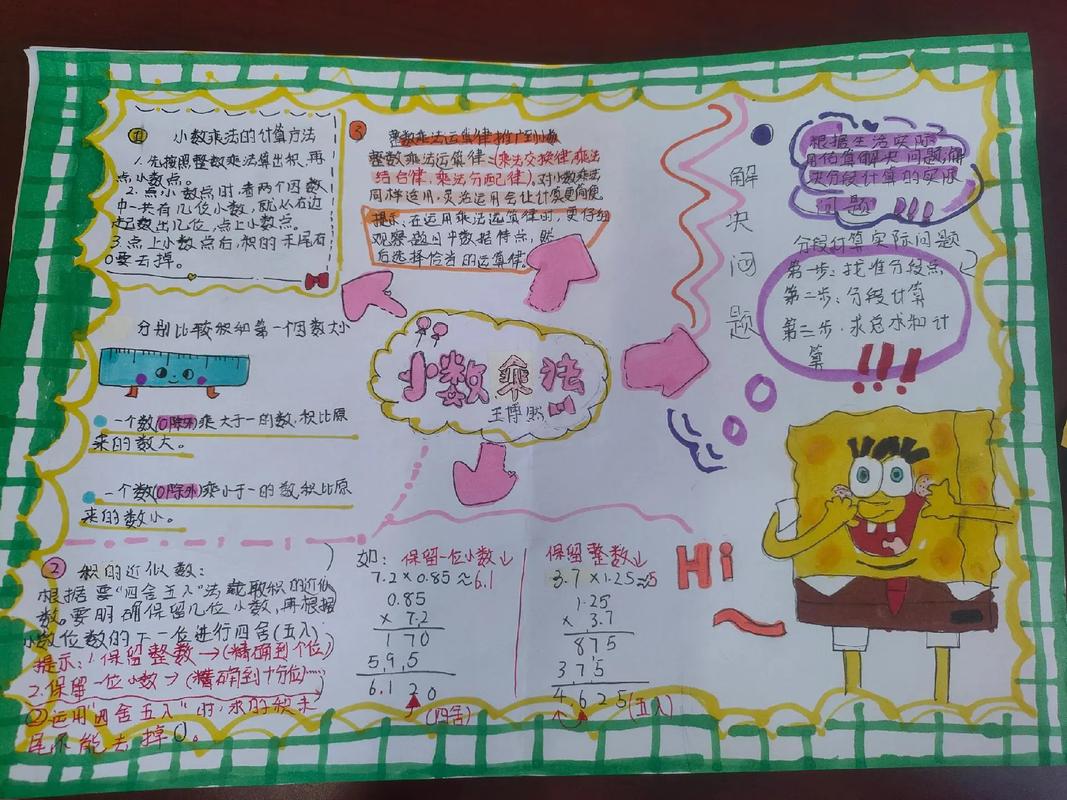 ① 小数乘法的计算方法
1.先按照整数乘法算出积,再
点小数点。
2.点小数点时,看两个因数
中一共有几位小数,就从右边
起数出几位,点上小数点。
3.点上小数点后,积的末尾有
0要去掉。
分别比较积和第一个因数大小
一个数(0除外)乘大于一的数,积比原
来的数大。
一个数(0除外)乘小于一的数,积比原
来的数小。
③ 整数乘法运算律推广到小数
整数乘法运算律:(乘法交换律,乘法
结合律,乘法分配律),对小数乘法
同样适用,灵活运用会让计算更简便
提示:在运用乘法运算律时,要仔细
观察题目中数据特点,然
后选择恰当的运算律。
小数乘法
王博然
解决问题
根据生活实际
用估算解决问题,解
决分段计算的实际
问题!!!
分段计算实际问题
第一步:找准分段点
第二步:分段计算
第三步:求总求和计
算
!!!
② 积的近似数:
根据要"四舍五入"法截取积的近似
数。要明确保留几位小数,再根据
小数位数的下一位进行四舍(五入)
提示:1.保留整数→(精确到个位)
2.保留一位小数→(精确到十分位)……
②运用"四舍五入"时,求的积末
尾不能去掉0。
如:保留一位小数↓
7.2×0.85≈6.1
0.85
× 7.2
1 70
5,9,5
6.1 2 0
(四舍)
保留整数↓
3.7×1.25≈5
1.25
× 3.7
875
375
4.625
(五入)
Hi